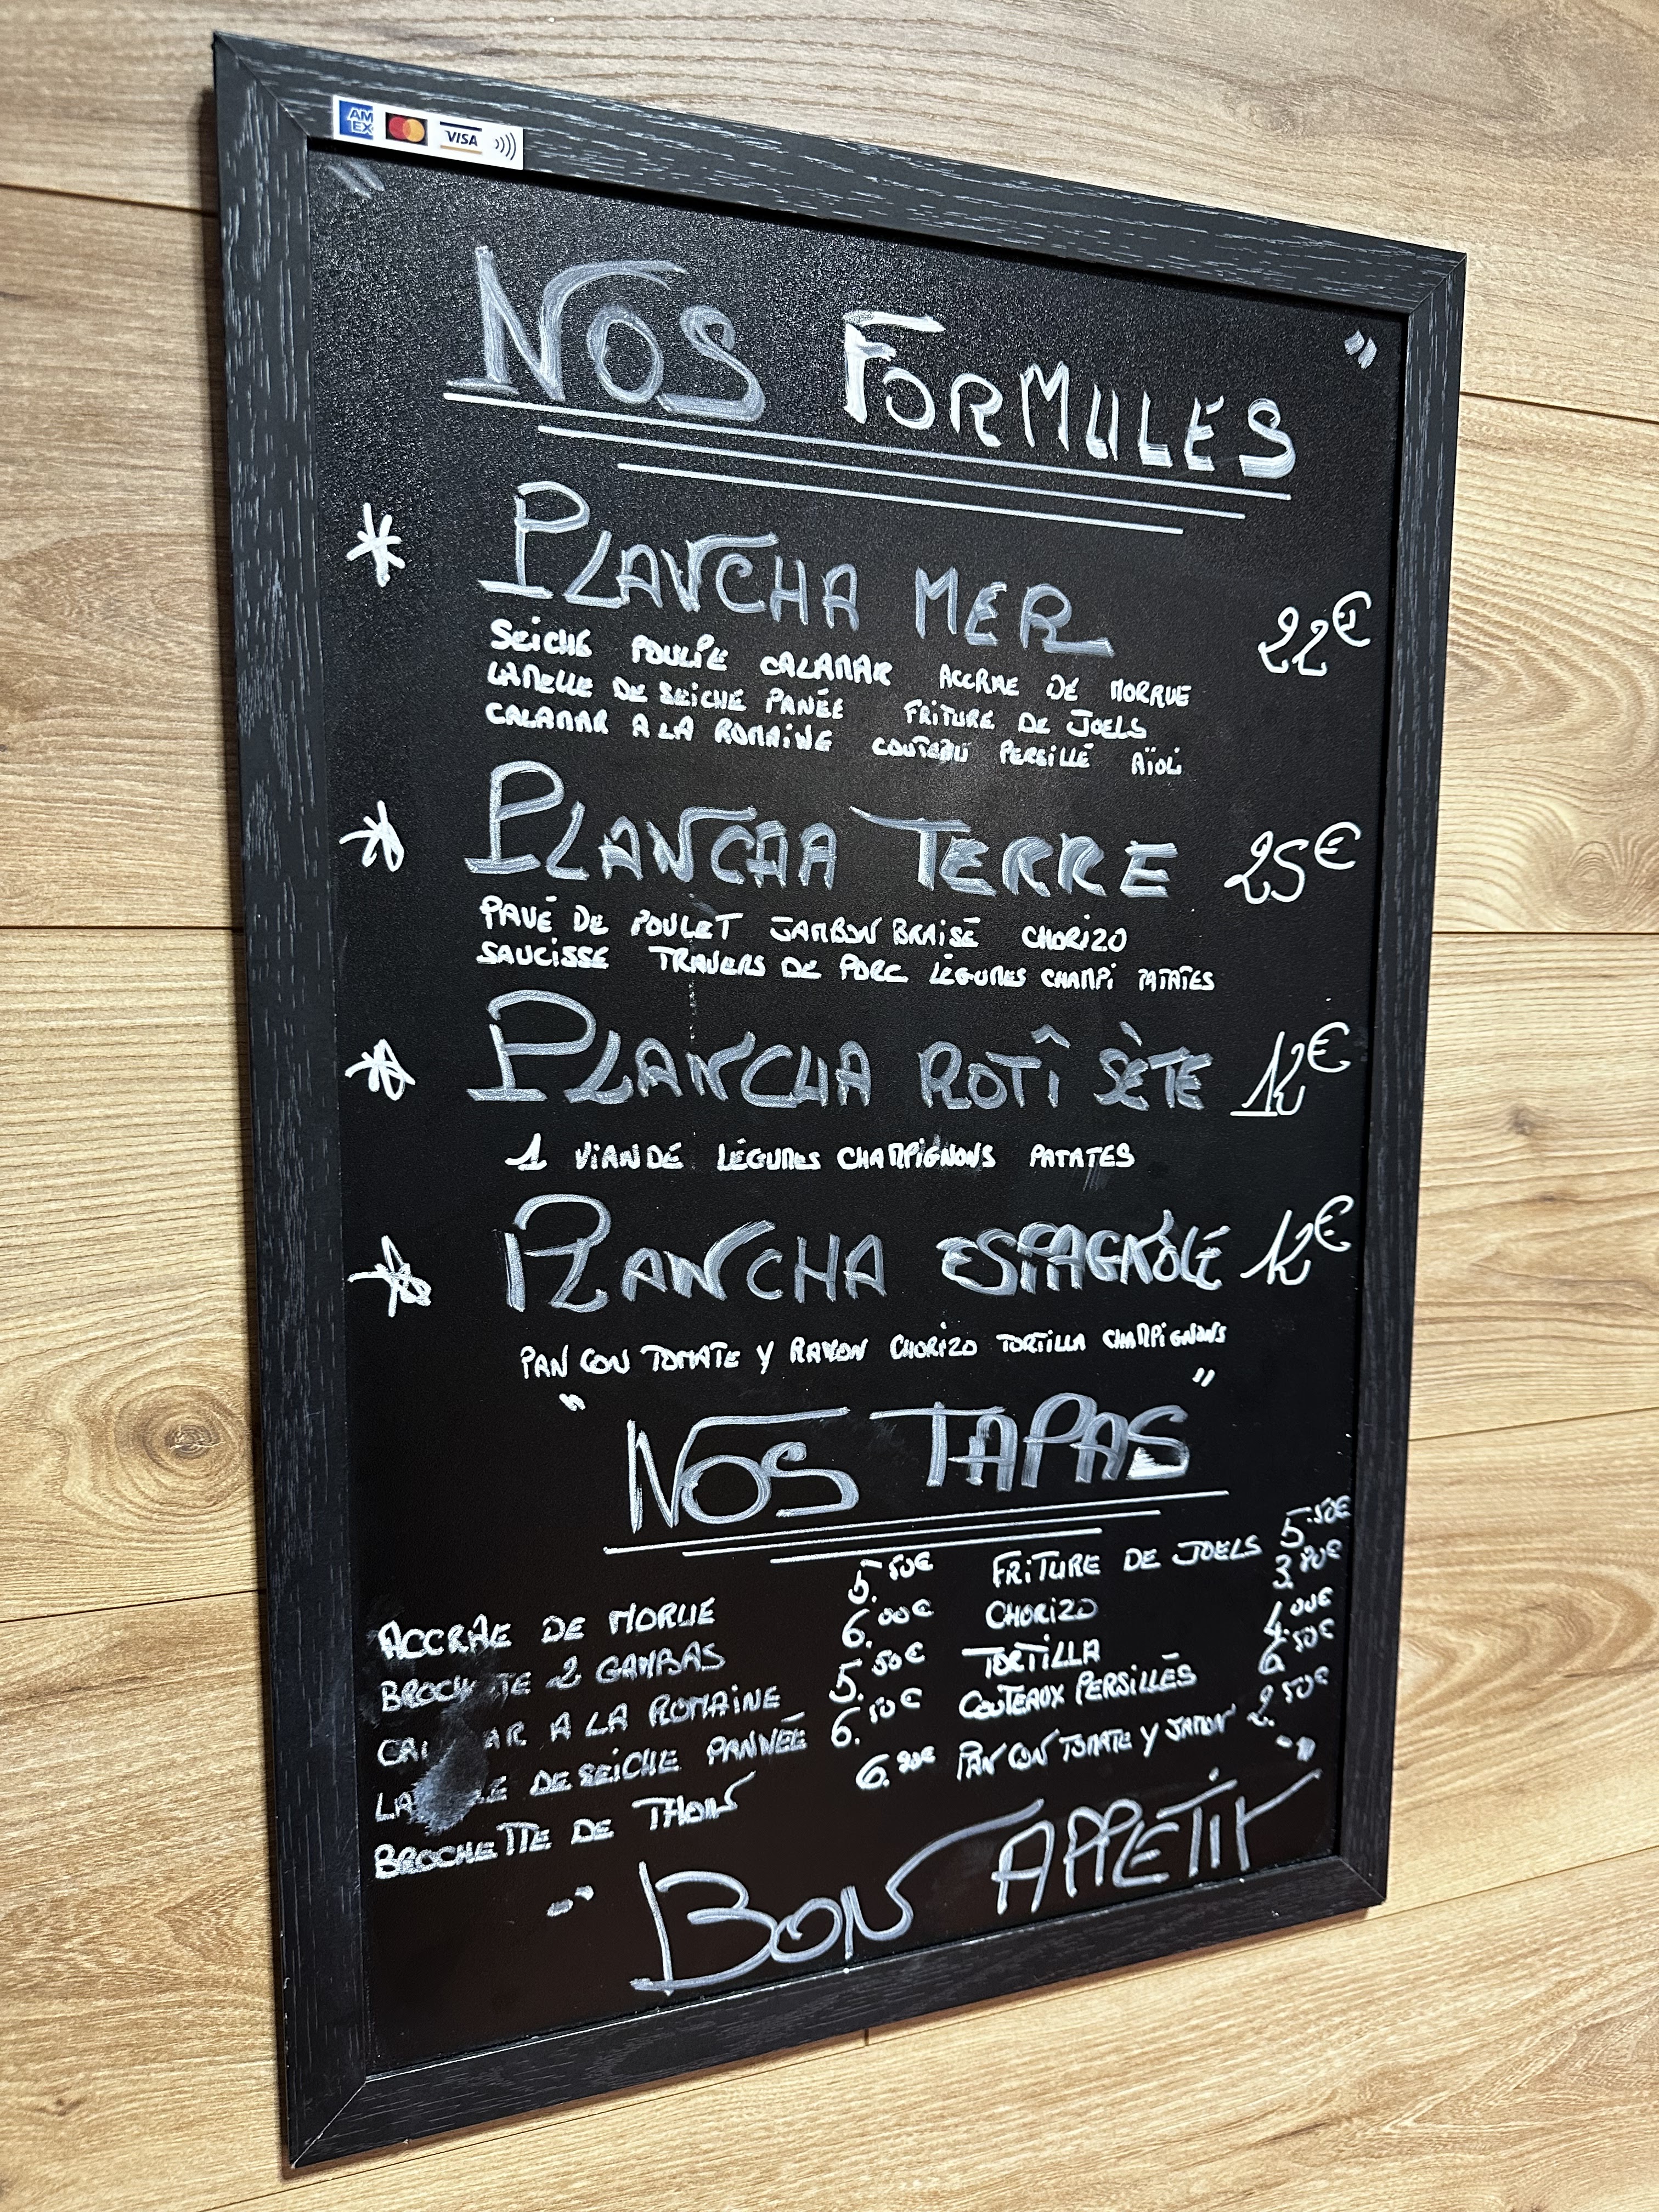 AM
EX
VISA
" NOS FORMULES "
* PLANCHA MER 22€
SEICHE POULPE CALAMAR ACCRAE DE MORRUE
LAMELLE DE SEICHE PANÉE FRITURE DE JOELS
CALAMAR A LA ROMAINE COUTEAU PERSILLÉ AÏOLI
* PLANCHA TERRE 25€
PAVÉ DE POULET JAMBON BRAISÉ CHORIZO
SAUCISSE TRAVERS DE PORC LÉGUMES CHAMPI PATATES
* PLANCHA ROTÎ SÈTE 12€
1 VIANDE LÉGUMES CHAMPIGNONS PATATES
* PLANCHA ESPAGNOLE 12€
PAN CON TOMATE Y CHORIZO TORTILLA CHAMPIGNONS
" NOS TAPAS "
ACCRAE DE MORUE 5.50€
BROCHETTE 2 GAMBAS 6.00€
CALAMAR A LA ROMAINE 5.50€
LAMELLE DE SEICHE PANNÉE 6.50€
BROCHETTE DE THON 6.90€
FRITURE DE JOELS 5.50€
CHORIZO
TORTILLA 4.00€
COUTEAUX PERSILLÉS 6.50€
PAN CON TOMATE Y JAMON 2.50€
" BON APPETIT "